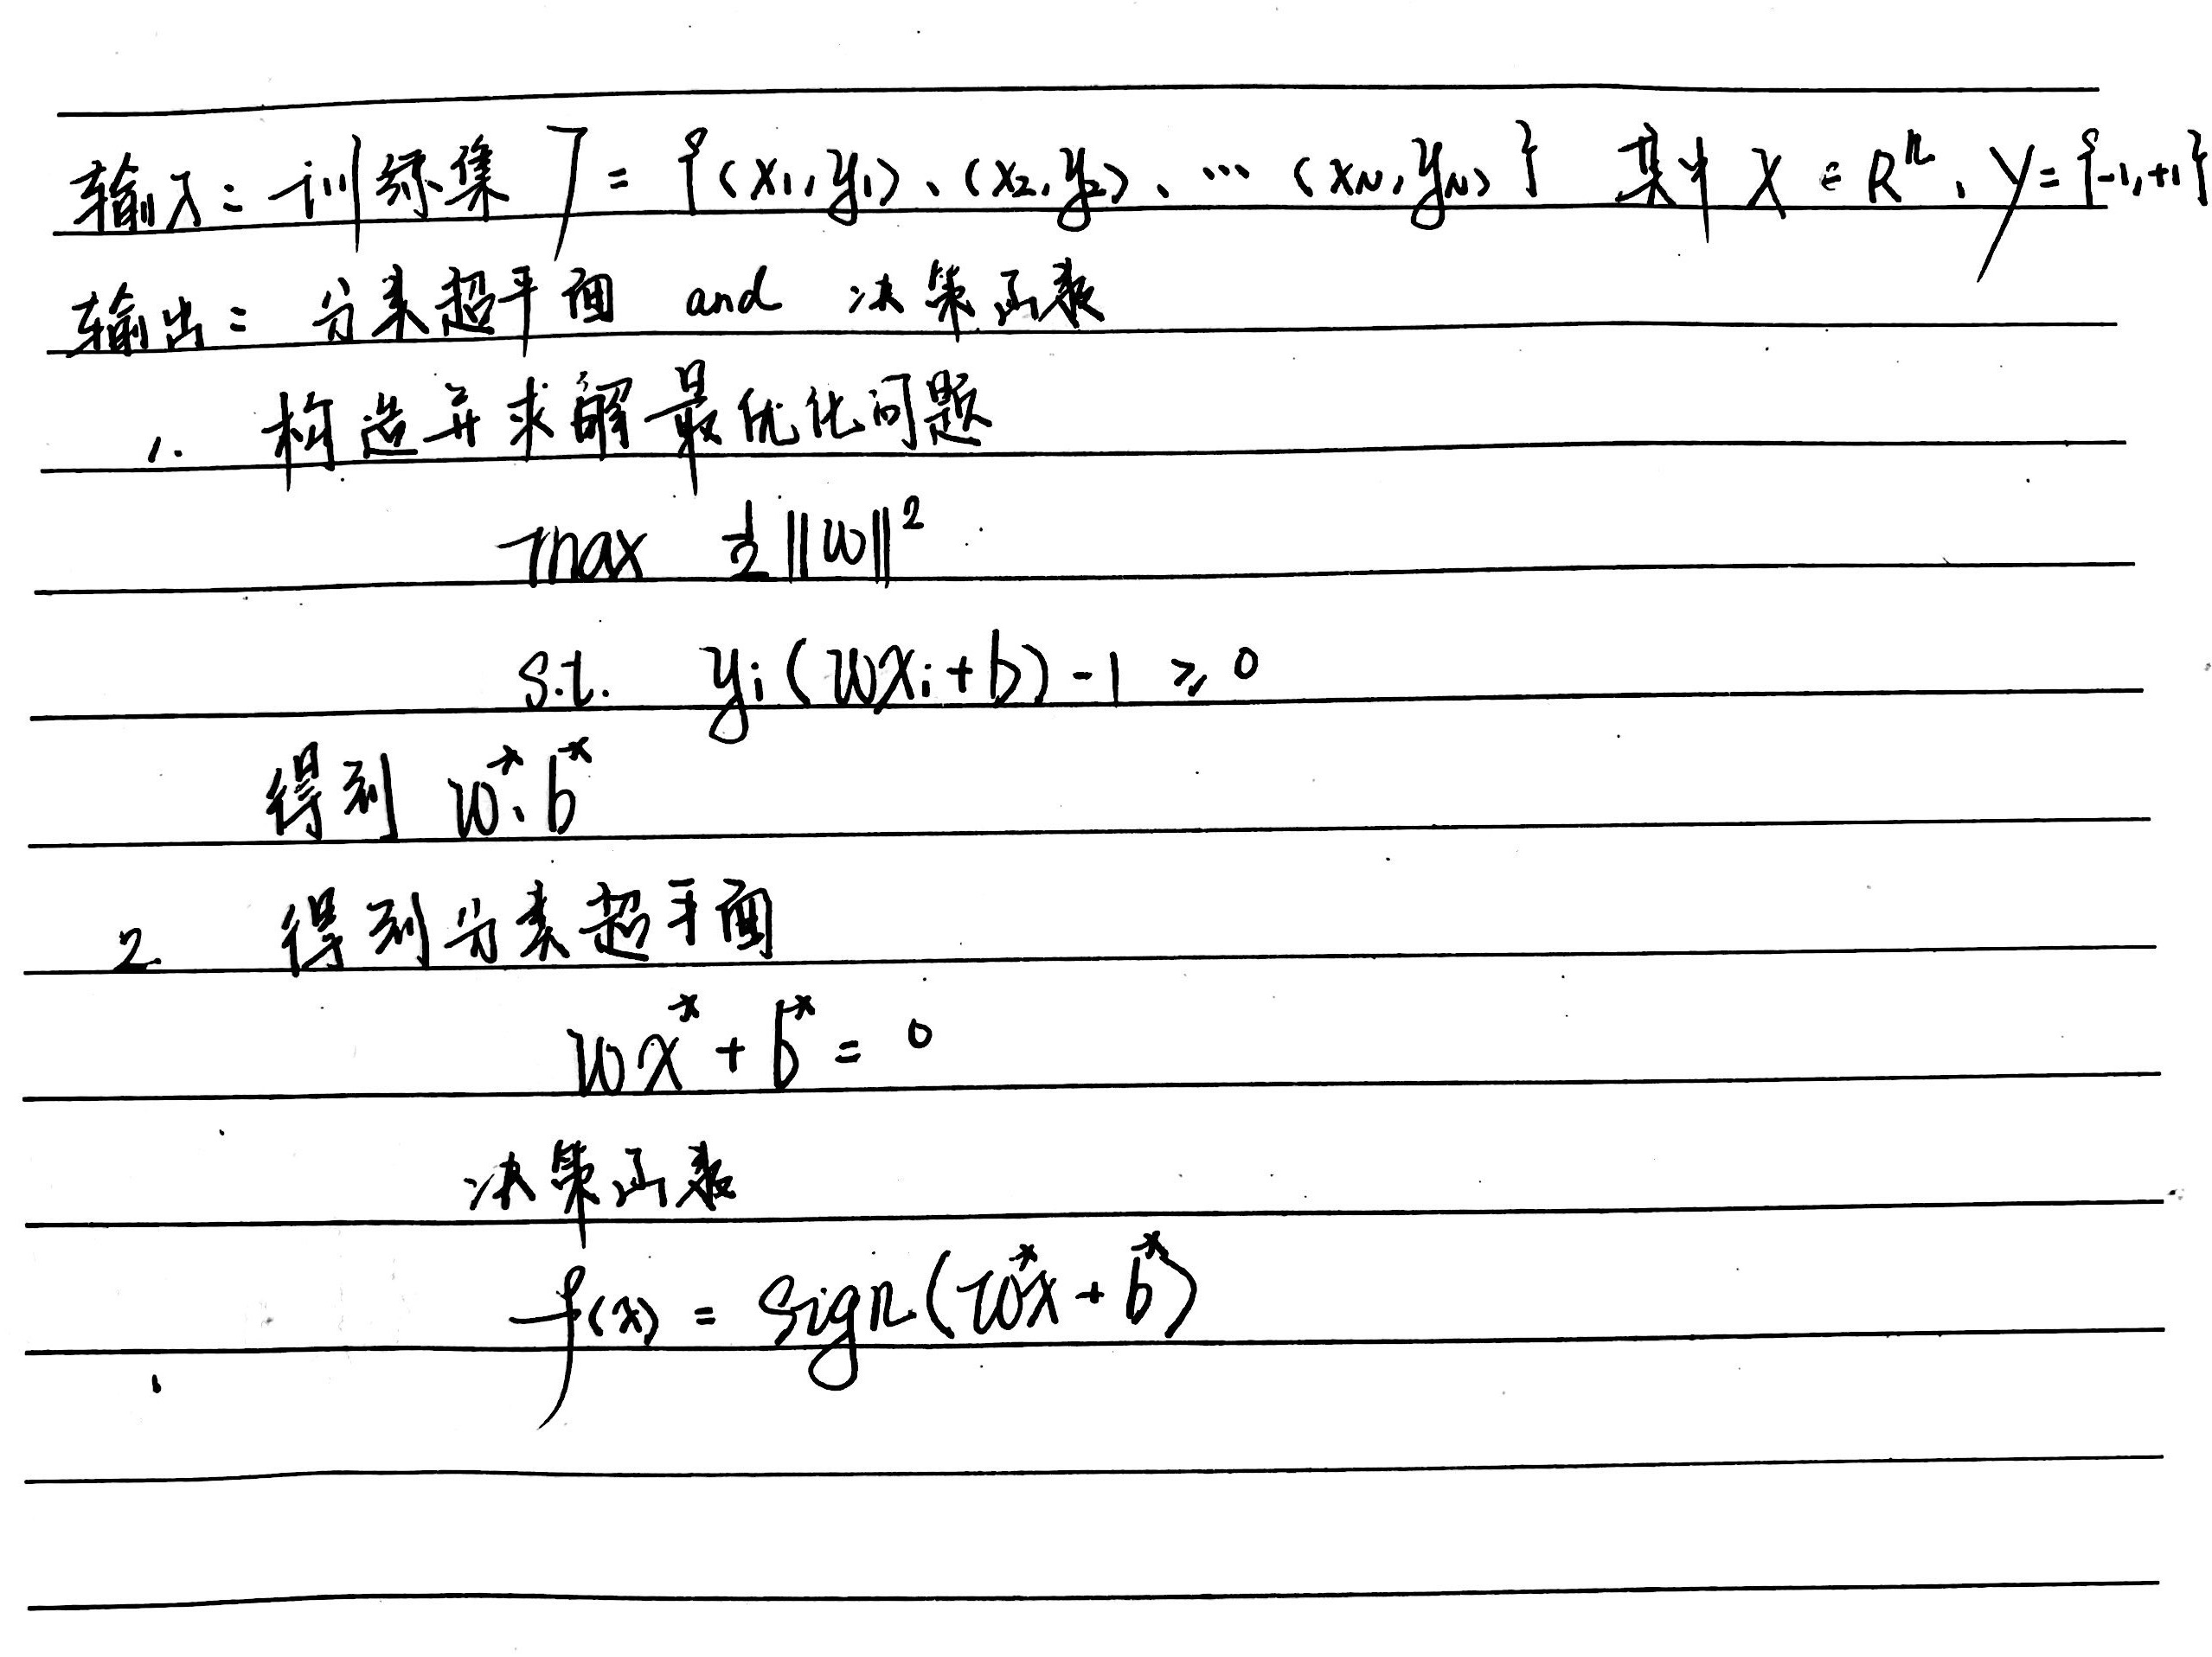 输入：训练集 T = {(x₁,y₁)、(x₂,y₂)、… (x_N,y_N)} 其中 X ∈ Rⁿ、Y={-1,+1}
输出：分类超平面 and 决策函数
1. 构造并求解最优化问题
max ½||w||²
s.t. yᵢ(wxᵢ+b)-1 ≥ 0
得到 w*、b*
2. 得到分类超平面
wx* + b* = 0
决策函数
f(x) = sign(w*x + b*)